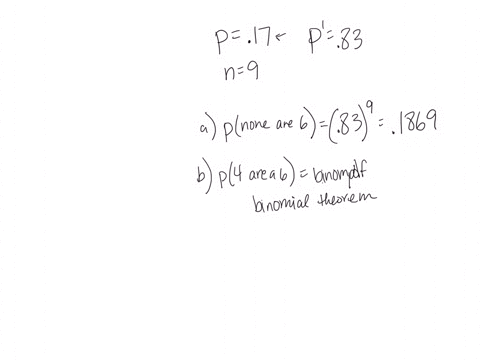 p = .17 ← p' = .83
n = 9
a) p(none are 6) = (.83)^9 = .1869
b) p(4 are a 6) = binompdf
binomial theorem